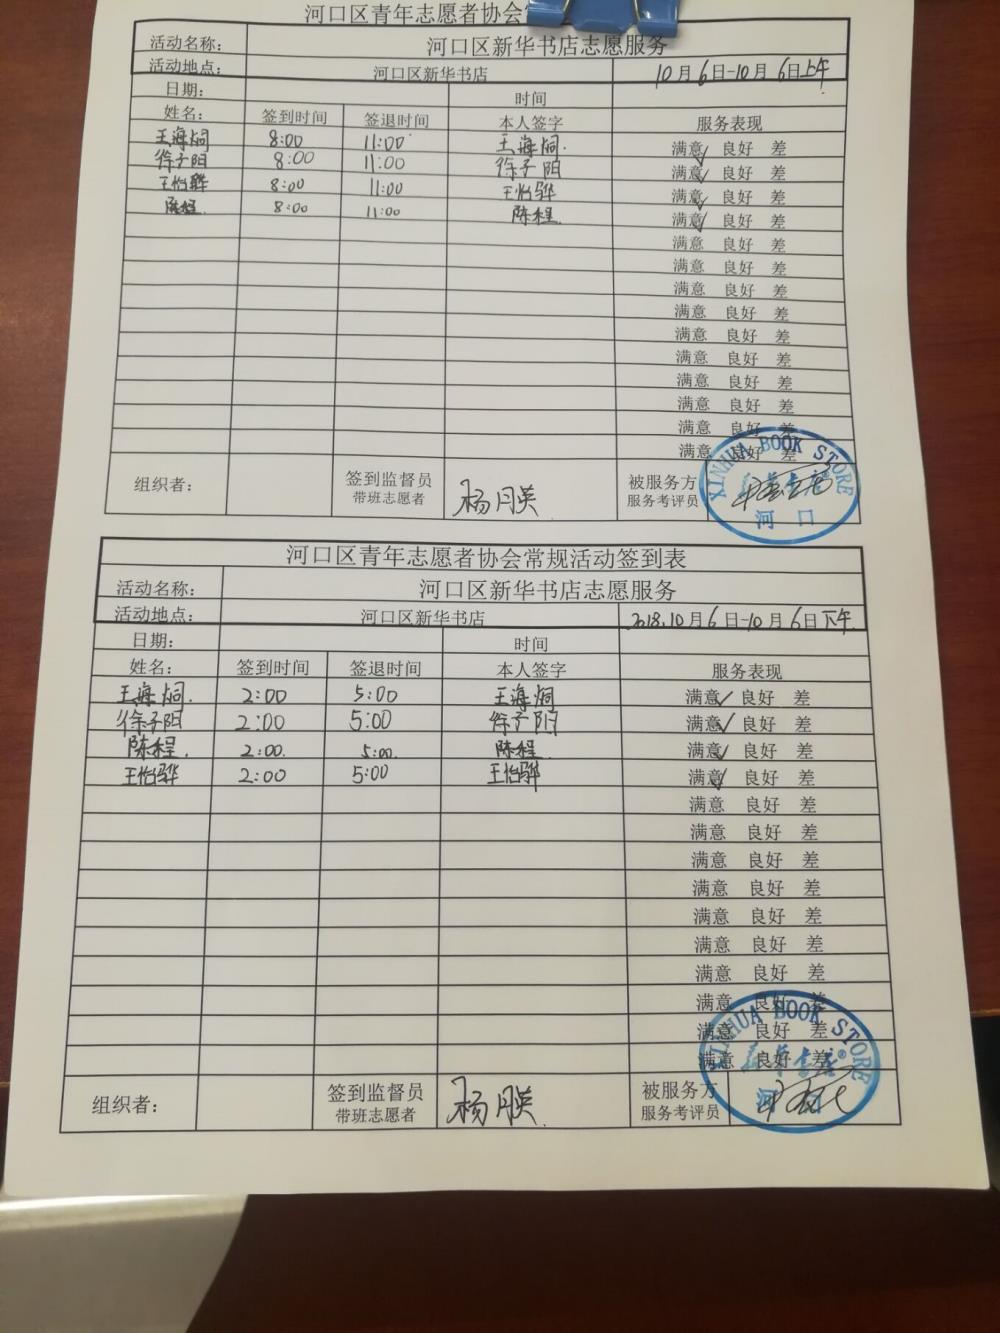 河口区青年志愿者协会常
活动名称： 河口区新华书店志愿服务
活动地点： 河口区新华书店 10月6日-10月6日上午
日期： 时间
姓名： 签到时间 签退时间 本人签字 服务表现
王海炯 8:00 11:00 王海炯. 满意✓ 良好 差
徐子阳 8:00 11:00 徐子阳 满意✓ 良好 差
王怡骅 8:00 11:00 王怡骅 满意✓ 良好 差
陈程. 8:00 11:00 陈程. 满意✓ 良好 差
满意 良好 差
满意 良好 差
满意 良好 差
满意 良好 差
满意 良好 差
满意 良好 差
满意 良好 差
满意 良好 差
满意 良好 差
满意 良好 差
组织者： 签到监督员 杨月英 被服务方
带班志愿者 服务考评员
XINHUA BOOK STORE
新华书店®
河口
河口区青年志愿者协会常规活动签到表
活动名称： 河口区新华书店志愿服务
活动地点： 河口区新华书店 2018.10月6日-10月6日下午.
日期： 时间
姓名： 签到时间 签退时间 本人签字 服务表现
王海炯. 2:00 5:00 王海炯 满意✓ 良好 差
徐子阳 2:00 5:00 徐子阳 满意✓ 良好 差
陈程. 2:00. 5:00. 陈程. 满意✓ 良好 差
王怡骅 2:00 5:00 王怡骅 满意✓ 良好 差
满意 良好 差
满意 良好 差
满意 良好 差
满意 良好 差
满意 良好 差
满意 良好 差
满意 良好 差
满意 良好 差
满意 良好 差
满意 良好 差
组织者： 签到监督员 杨月英 被服务方
带班志愿者 服务考评员
XINHUA BOOK STORE
新华书店®
河口